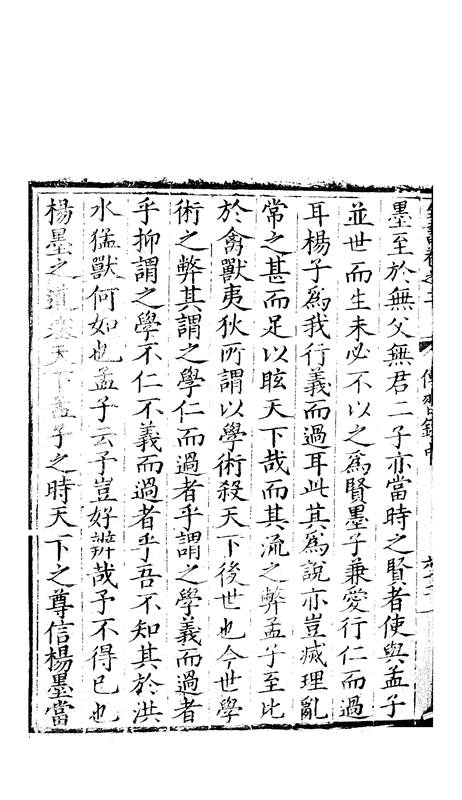 墨至於無父無君二子亦當時之賢者使與孟子
並世而生未必不以之爲賢墨子兼愛行仁而過
耳楊子爲我行義而過耳此其爲說亦豈滅理亂
常之甚而足以眩天下哉而其流之弊孟子至比
於禽獸夷狄所謂以學術殺天下後世也今世學
術之弊其謂之學仁而過者乎謂之學義而過者
乎抑謂之學不仁不義而過者乎吾不知其於洪
水猛獸何如也孟子云予豈好辨哉予不得已也
楊墨之道塞天下孟子之時天下之尊信楊墨當